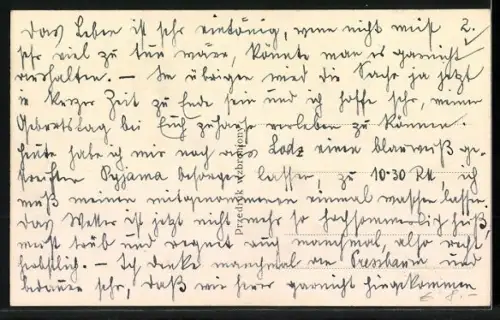 Das Leben ist sehr eintönig, wenn nicht mist 2.
sehr viel zu tun wäre, könnte man es garnicht
aushalten. — Im übrigen wird die Sache ja jetzt
in kurzer Zeit zu Ende sein und ich hoffe sehr, meinen
Geburtstag bei Euch zuhause verleben zu können.
Heute habe ich mir noch aus Lodz einen blauweiß ge-
streiften Pyjama besorgen lassen, zu 10·30 RM, ich
muß meinen mitgenommenen einmal waschen lassen.
Das Wetter ist jetzt nicht mehr so hochsommerlich heiß,
meist trüb und regnet auch manchmal, also recht
herbstlich. — Ich denke manchmal an Pressbaum und
bedaure sehr, daß wir heuer garnicht hingekommen
Przedruk wzbroniony